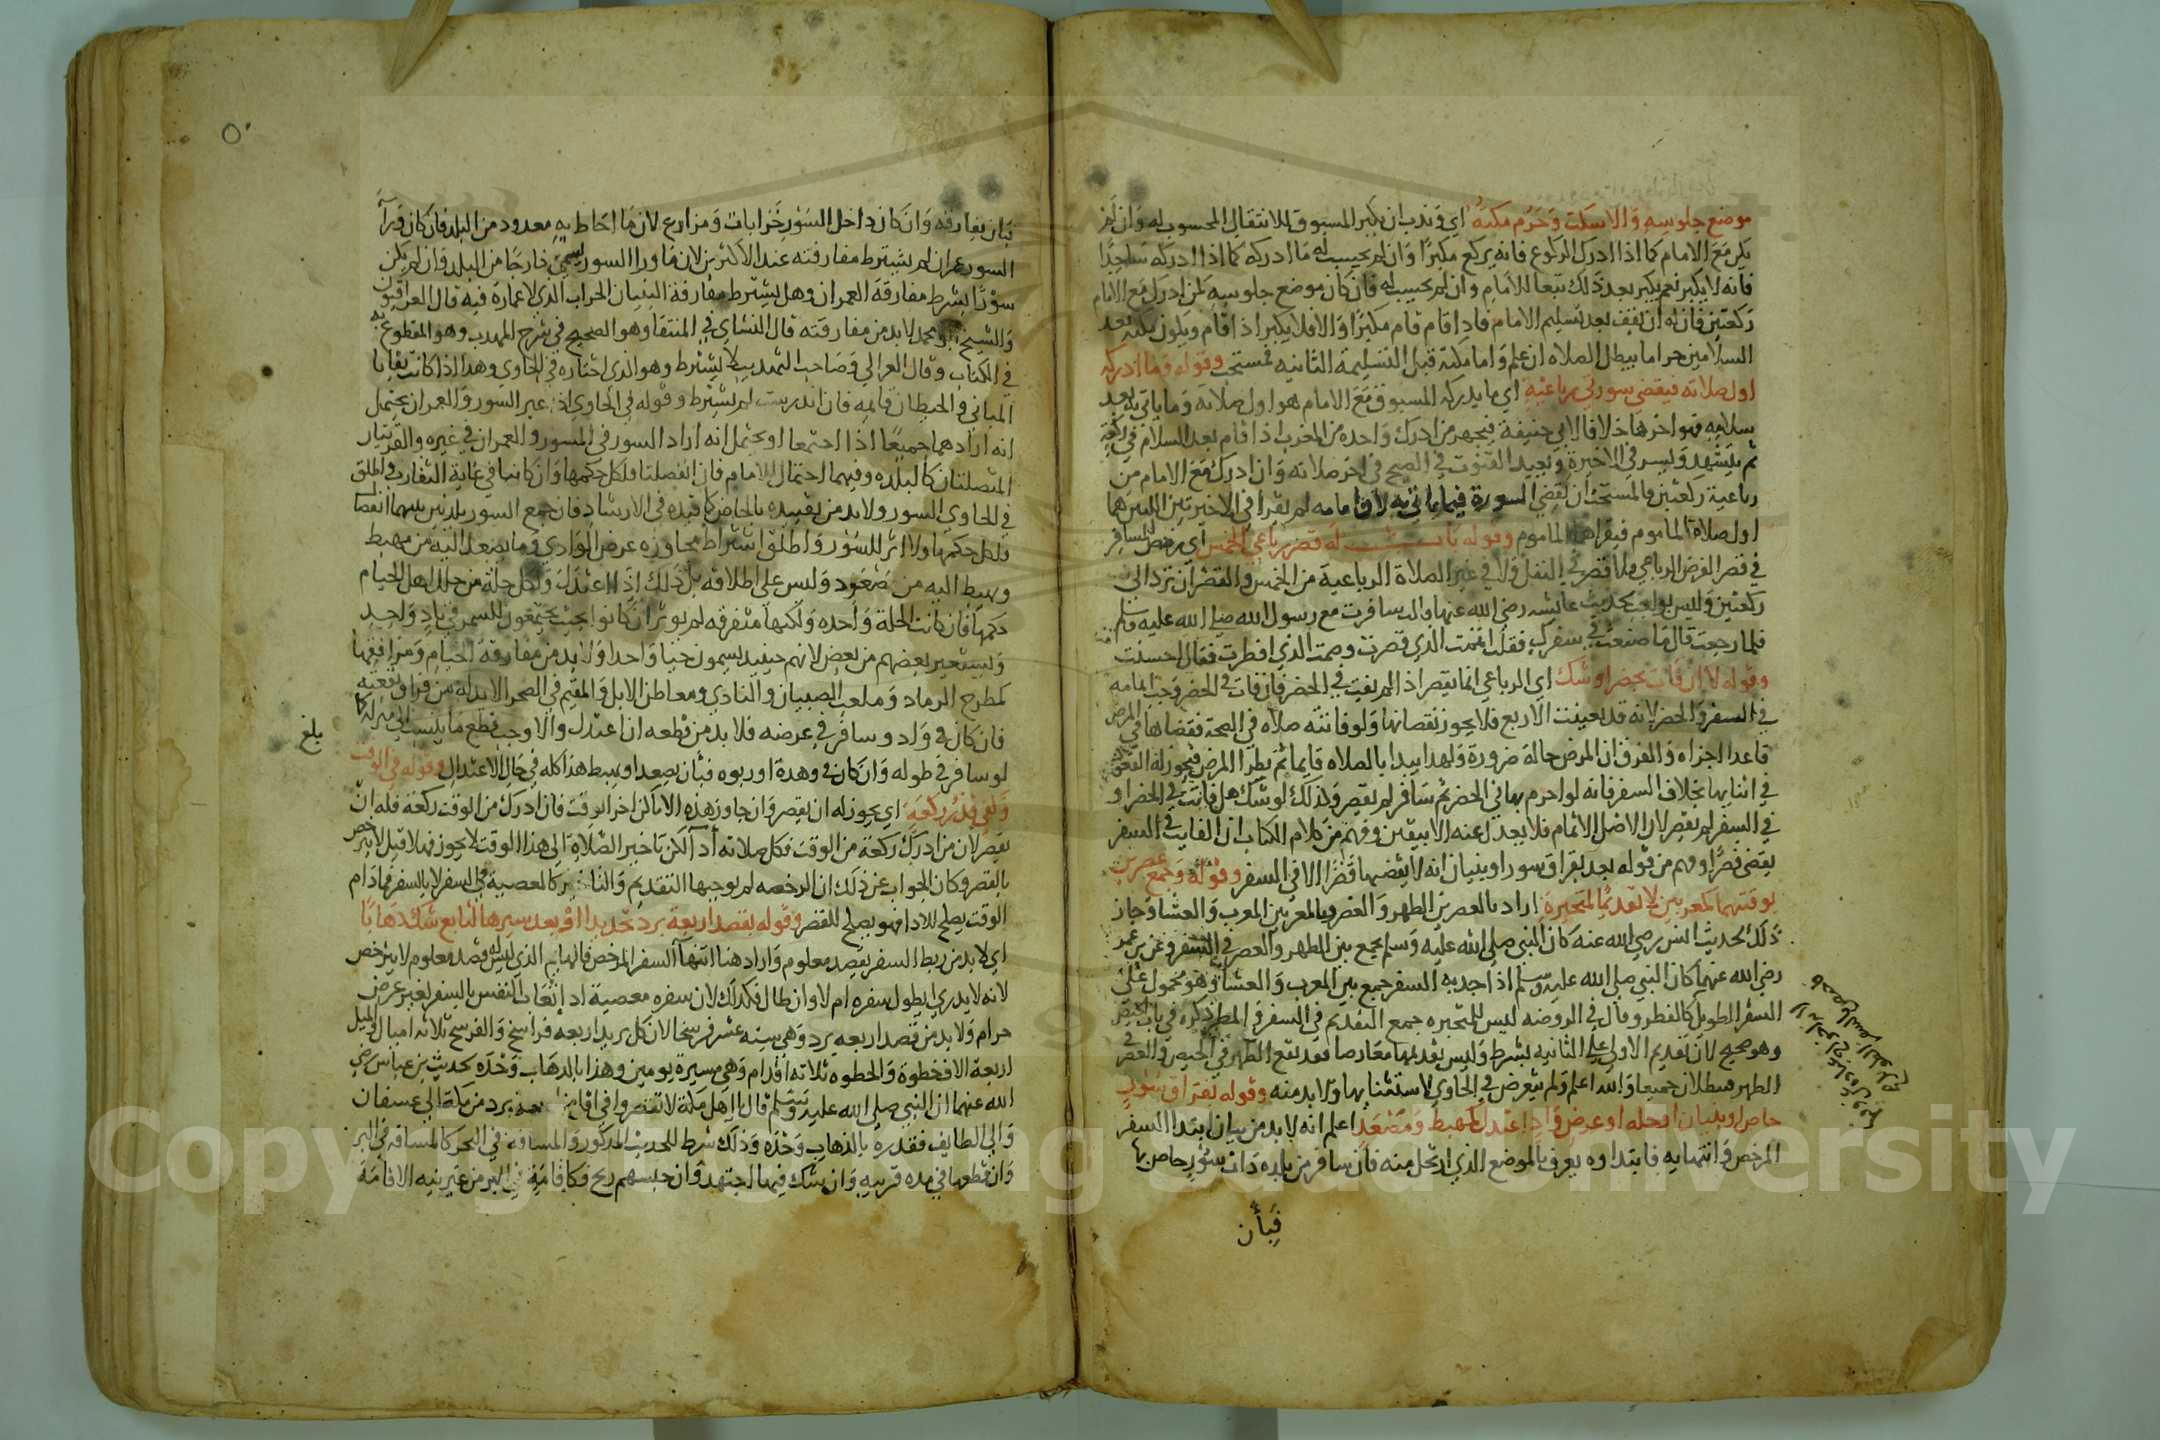 موضع جلوسه والاسكت وحرم مكثه اي وندب ان يكبر المسبوق للانتقال المحسوب له وان لم
يكن مع الامام كما اذا ادرك الركوع فانه يركع مكبرا وان لم يحسب له ما ادركه كما اذا ادركه ساجدا
فانه لا يكبر نعم يكبر بعد ذلك تبعا للامام وان لم يحسب له فان كان موضع جلوسه كمن ادرك مع الامام
ركعتين فان له ان يقف بعد تسليم الامام فاذا قام قام مكبرا والا فلا يكبر اذا قام ويكون مكثه بعد
السلامين حراما يبطل الصلاه ان علم واما مكثه قبل التسليمة الثانيه فمستحب وقوله وما ادركه
اول صلاته فيقضي سورتي رباعيه اي ما يدركه المسبوق مع الامام هو اول صلاته وما ياتي به بعد
سلامه فهو اخرها خلافا لابي حنيفة فيجهر من ادرك واحده من المغرب اذا قام بعد السلام في ركعة
ثم يتشهد ويسر في الاخيرة ويعيد القنوت في الصبح في اخر صلاته وان ادرك مع الامام من
رباعية ركعتين فالمستحب ان يقضي السورة فيما ياتي به لان امامه لم يقرا في الاخيرتين اللتين هما
اول صلاة الماموم فيقراهما الماموم وقوله باب له قصر رباعي الخمس اي يرخص للمسافر
في قصر الفرض الرباعي فلا قصر في النفل ولا في غير الصلاة الرباعية من الخمس والقصر ان ترد الى
ركعتين وليس بواجب لحديث عايشه رضي الله عنها قالت سافرت مع رسول الله صلى الله عليه وسلم
فلما رجعت قال ما صنعت في سفرك فقلت اتممت الذي قصرت وصمت الذي افطرت فقال احسنت
وقوله لا ان فات بحضر او شك اي الرباعي انما يقصر اذا لم يفت في الحضر فان فات في الحضر وجب اتمامه
في السفر والحضر لانه قد تعينت الاربع فلا يجوز نقصانها ولو فاتته صلاه في الصحة فقضاها في المرض
قاعدا اجزاه والفرق ان المرض حالة ضرورة ولهذا يبدا بالصلاه قايما ثم يطرا المرض فيجوز له القعود
في اثنايها بخلاف السفر فانه لو احرم بها في الحضر ثم سافر لم يقصر وكذلك لو شك هل فاتت في الحضر او
في السفر لم يقصر لان الاصل الاتمام فلا يعدل عنه الا بيقين وفهم من كلام الكتاب ان الفايت في السفر
يقضى قصرا وفهم من قوله بعد بفراق سور او بنيان انه لا يقضيها قصرا الا في السفر وقوله وجمع عصرين
بوقتيهما كمغربين لا تقديما لمتحيرة اراد بالعصرين الظهر والعصر وبالمغربين المغرب والعشا وجاز
ذلك لحديث انس رضي الله عنه كان النبي صلى الله عليه وسلم يجمع بين الظهر والعصر في السفر وعن بن عمر
رضي الله عنهما كان النبي صلى الله عليه وسلم اذا جد به السفر جمع بين المغرب والعشا وهو محمول على
السفر الطويل كالفطر وقال في الروضه ليس للمتحيره جمع التقديم في السفر والمطر ذكره في باب الحيض
وهو صحيح لان تقديم الاولى على الثانيه بشرط وليس تقديمها معارضا فقد تقع الظهر في الحيض والعصر في
الطهر فيبطلان جميعا والله اعلم ولم يتعرض في الحاوي لاستثنايها ولا بد منه وقوله بفراق سور
خاص او بنيان او حله او عرض واد اعتدل كمهبط ومصعد اعلم انه لا بد من بيان ابتدا السفر
المرخص وانتهايه فابتداوه يعرف بالموضع الذي ارتحل منه فان سافر من بلده ذات سور خاص بها
فبأن
٥٠
فبان يفارقه وان كان داخل السور خرابات ومزارع لان ما احاط به معدود من البلد فان كان ورآ
السور عمران لم يشترط مفارقته عند الاكثرين لان ما ورا السور يسمى خارجا من البلد وان لم يكن
سور اشترط مفارقة العمران وهل يشترط مفارقة البنيان الخراب الذي لا عمارة فيه قال العراقيون
والشيخ ابو محمد لا بد من مفارقته قال النشاي في المنتقا وهو الصحيح في شرح المهذب وهو المقطوع به
في الكتاب وقال الغزالي وصاحب التهذيب لا يشترط وهو الذي اختاره في الحاوي وهذا اذا كانت بقايا
المباني والحيطان قايمه فان اندرست لم يشترط وقوله في الحاوي اذا عبر السور والعمران يحتمل
انه ارادهما جميعا اذا اجتمعا او يحتمل انه اراد السور في المسور والعمران في غيره والقريتان
المتصلتان كالبلده وفيهما احتمال للامام فان انفصلتا فلكل حكمها وان كانتا في غاية التقارب واطلق
في الحاوي السور ولا بد من تقييده بالخاص كما قيده في الارشاد فان جمع السور بلدتين بينهما انفصال
ولكل حكمها ولا اثر للسور واطلق اشتراط مجاوزه عرض الوادي وما يصعد اليه من مهبط
ويهبط اليه من صعود وليس على اطلاقه بل ذلك اذا اعتدل ولكل حلة من حلل اهل الخيام
حكمها فان كانت الحلة واحده ولكنها متفرقه لم يوثر ان كانوا بحيث يجتمعون للسمر في ناد واحد
ويستعير بعضهم من بعض لانهم حينيذ يسمون حيا واحدا ولا بد من مفارقة الخيام ومرافقها
كمطرح الرماد وملعب الصبيان والنادي ومعاطن الابل والمقيم في الصحرا لا بد له من فراق بقعته
فان كان في واد وسافر في عرضه فلا بد من قطعه ان اعتدل والا وجب قطع ما ينسب الى منزله كما
لو سافر في طوله وان كان في وهدة او ربوه فبأن يصعد او يهبط هذا كله في حال الاعتدال وقوله في الوقت
ولو في قدر ركعة اي يجوز له ان يقصر وان جاوز هذه الاماكن اخر الوقت فان ادرك من الوقت ركعة فله ان
يقصر لان من ادرك ركعة من الوقت فكل صلاته أدآ لكن تاخير الصلاة الى هذا الوقت لا يجوز فهلا قيل لا يترخص
بالقصر وكان الجواب عن ذلك ان الرخصه لم يوجبها التقديم والتاخير كالمعصية في السفر لا بالسفر فما دام
الوقت يصلح للادا فهو يصلح للقصر وقوله بقصد اربعة برد تحديدا او بعد سيرها لتابع شك ذهابا
اي لا بد من ربط السفر بقصد معلوم واراد هنا انتهآ السفر المرخص فالهايم الذي ليس له قصد معلوم لا يترخص
لانه لا يدري ايطول سفره ام لا وان طال فكذلك لان سفره معصية اذ اتعاب النفس بالسفر لغير غرض
حرام ولا بد من قصد اربعه برد وهي سته عشر فرسخا لان كل بريد اربعه فراسخ والفرسخ ثلاثه اميال والميل
اربعة الاف خطوة والخطوه ثلاثه اقدام وهي مسيرة يومين وهذا بالذهاب وحده لحديث بن عباس رضي
الله عنهما ان النبي صلى الله عليه وسلم قال يا اهل مكة لا تقصروا في اقل من اربعه برد من مكة الى عسفان
والى الطايف فقدره بالذهاب وحده وذلك شرط للحديث المذكور والمسافه في البحر كالمسافه في البر
وان قطعها في مده قريبه وان شك فيها اجتهد وان حبسهم ريح فكاقامة في البر من غير نيه الاقامة
بلغ